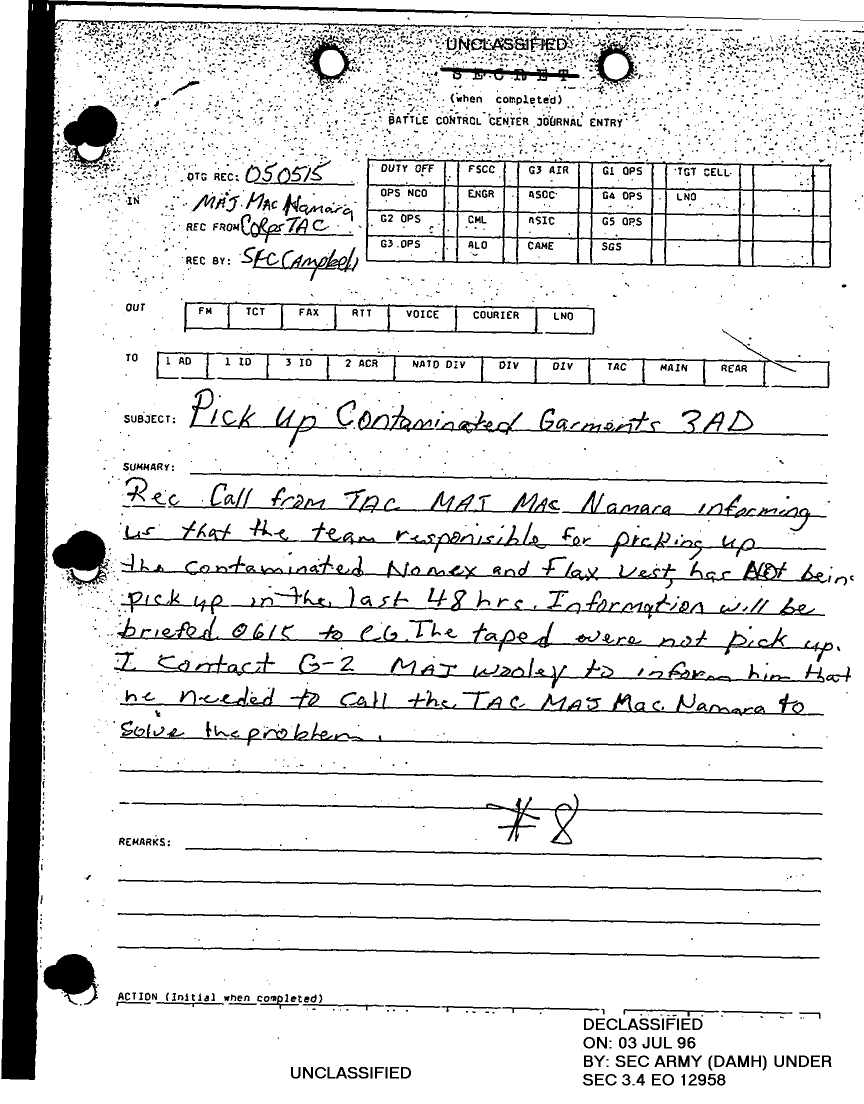 UNCLASSIFIED
SECRET
(when completed)
BATTLE CONTROL CENTER JOURNAL ENTRY
IN
DTG REC: 050515
MAJ Mac Namara
REC FROM Corps TAC
REC BY: SFC Campbell
DUTY OFF FSCC G3 AIR G1 OPS TGT CELL
OPS NCO ENGR ASOC G4 OPS LNO
G2 OPS CML ASIC G5 OPS
G3 OPS ALO CAME SGS
OUT FM TCT FAX RTT VOICE COURIER LNO
TO 1 AD 1 ID 3 ID 2 ACR NATO DIV DIV DIV TAC MAIN REAR
SUBJECT: Pick up Contaminated Garments 3AD
SUMMARY:
Rec Call from TAC MAJ Mac Namara informing
us that the team responisible for picking up
the contaminated Nomex and Flax Vest, has Not bein
pick up in the last 48 hrs. Information will be
briefed 0615 to CG. The taped were not pick up.
I Contact G-2 MAJ Wooley to inform him that
he needed to call the TAC MAJ Mac Namara to
Solve the problem.
#8
REMARKS:
ACTION (Initial when completed)
DECLASSIFIED
ON: 03 JUL 96
BY: SEC ARMY (DAMH) UNDER
SEC 3.4 EO 12958
UNCLASSIFIED